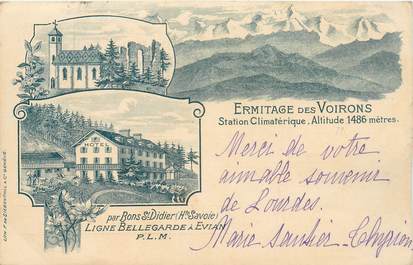 ERMITAGE DES VOIRONS
Station Climatérique, Altitude 1486 mètres.
HOTEL
par Bons St Didier (Hte Savoie)
LIGNE BELLEGARDE À EVIAN
P.L.M.
Merci de votre
aimable souvenir
de Lourdes.
Marie